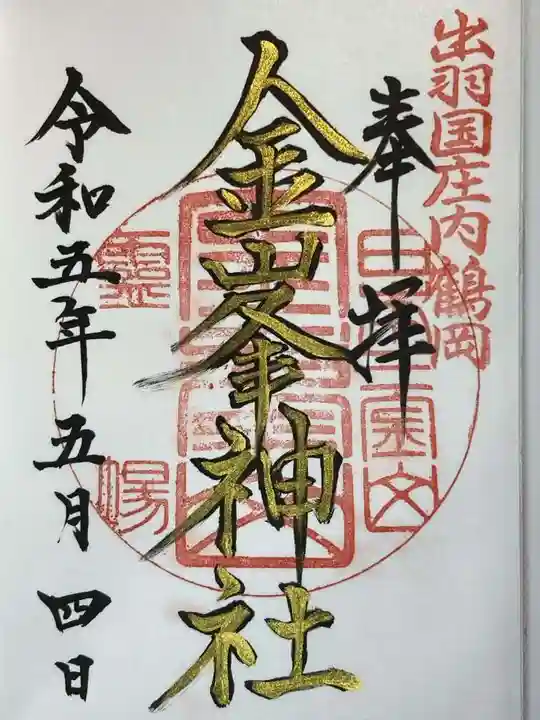 出羽国庄内鶴岡
奉拝
金峯神社
令和五年五月四日
靈場